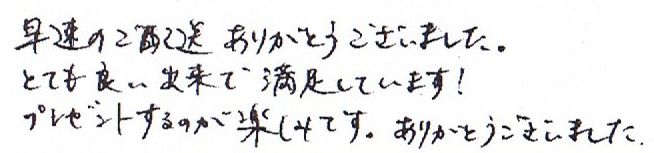 早速のご配送 ありがとうございました。
とても良い出来で 満足しています!
プレゼントするのが楽しみです。ありがとうございました.